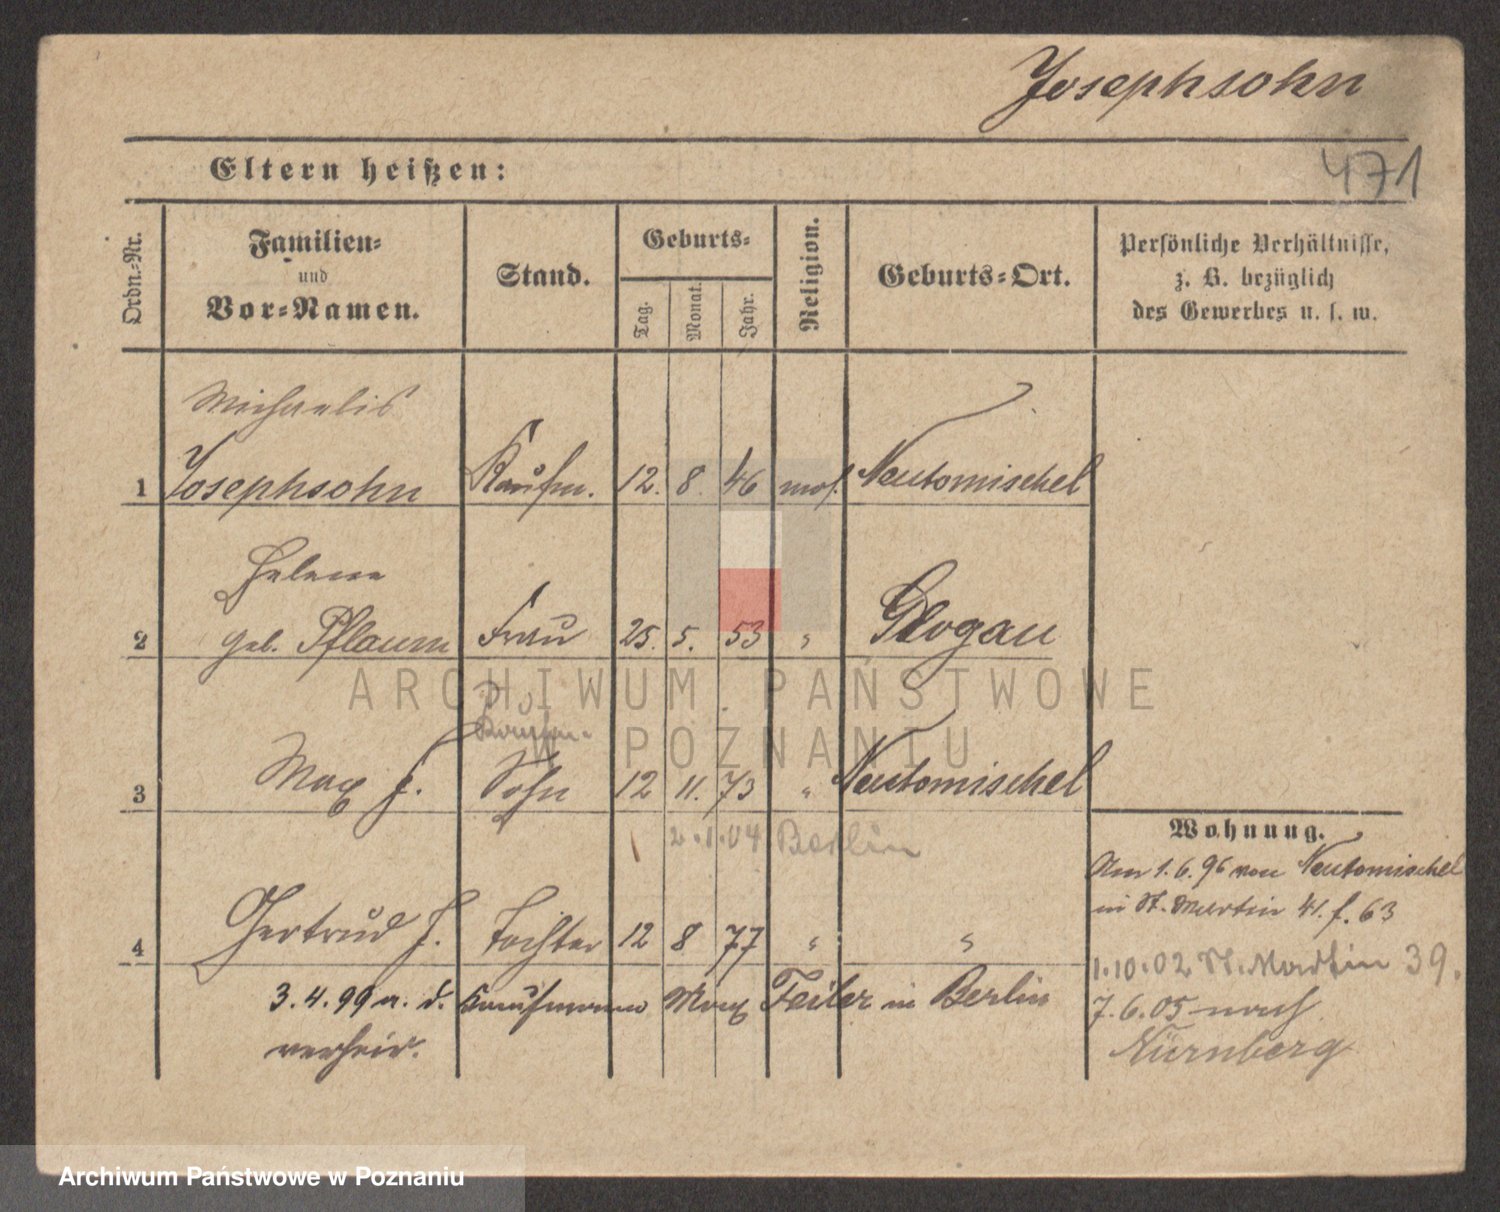 Josephsohn
471
Eltern heißen:
Ordn.-Nr.
Familien-
und
Vor-Namen.
Stand.
Geburts-
Tag.
Monat.
Jahr.
Religion.
Geburts-Ort.
Persönliche Verhältnisse,
z. B. bezüglich
des Gewerbes u. s. w.
Michaelis
1 Josephsohn Kaufm. 12. 8. 46 mos. Neutomischel
Helene
2 geb. Pflaum Frau 25. 5. 53 " Glogau
Kaufm.
3 Max J. Sohn 12 11. 73 " Neutomischel
2.1.04 Berlin
4 Gertrud J. Tochter 12 8 77 " "
3.4.99 a. d. Kaufmann Max Feiler in Berlin
verheir.
Wohnung.
Am 1.6.96 von Neutomischel
in St. Martin 41. f. 63
1.10.02 St. Martin 39.
7.6.05 nach
Nürnberg
ARCHIWUM PAŃSTWOWE
W POZNANIU
Archiwum Państwowe w Poznaniu